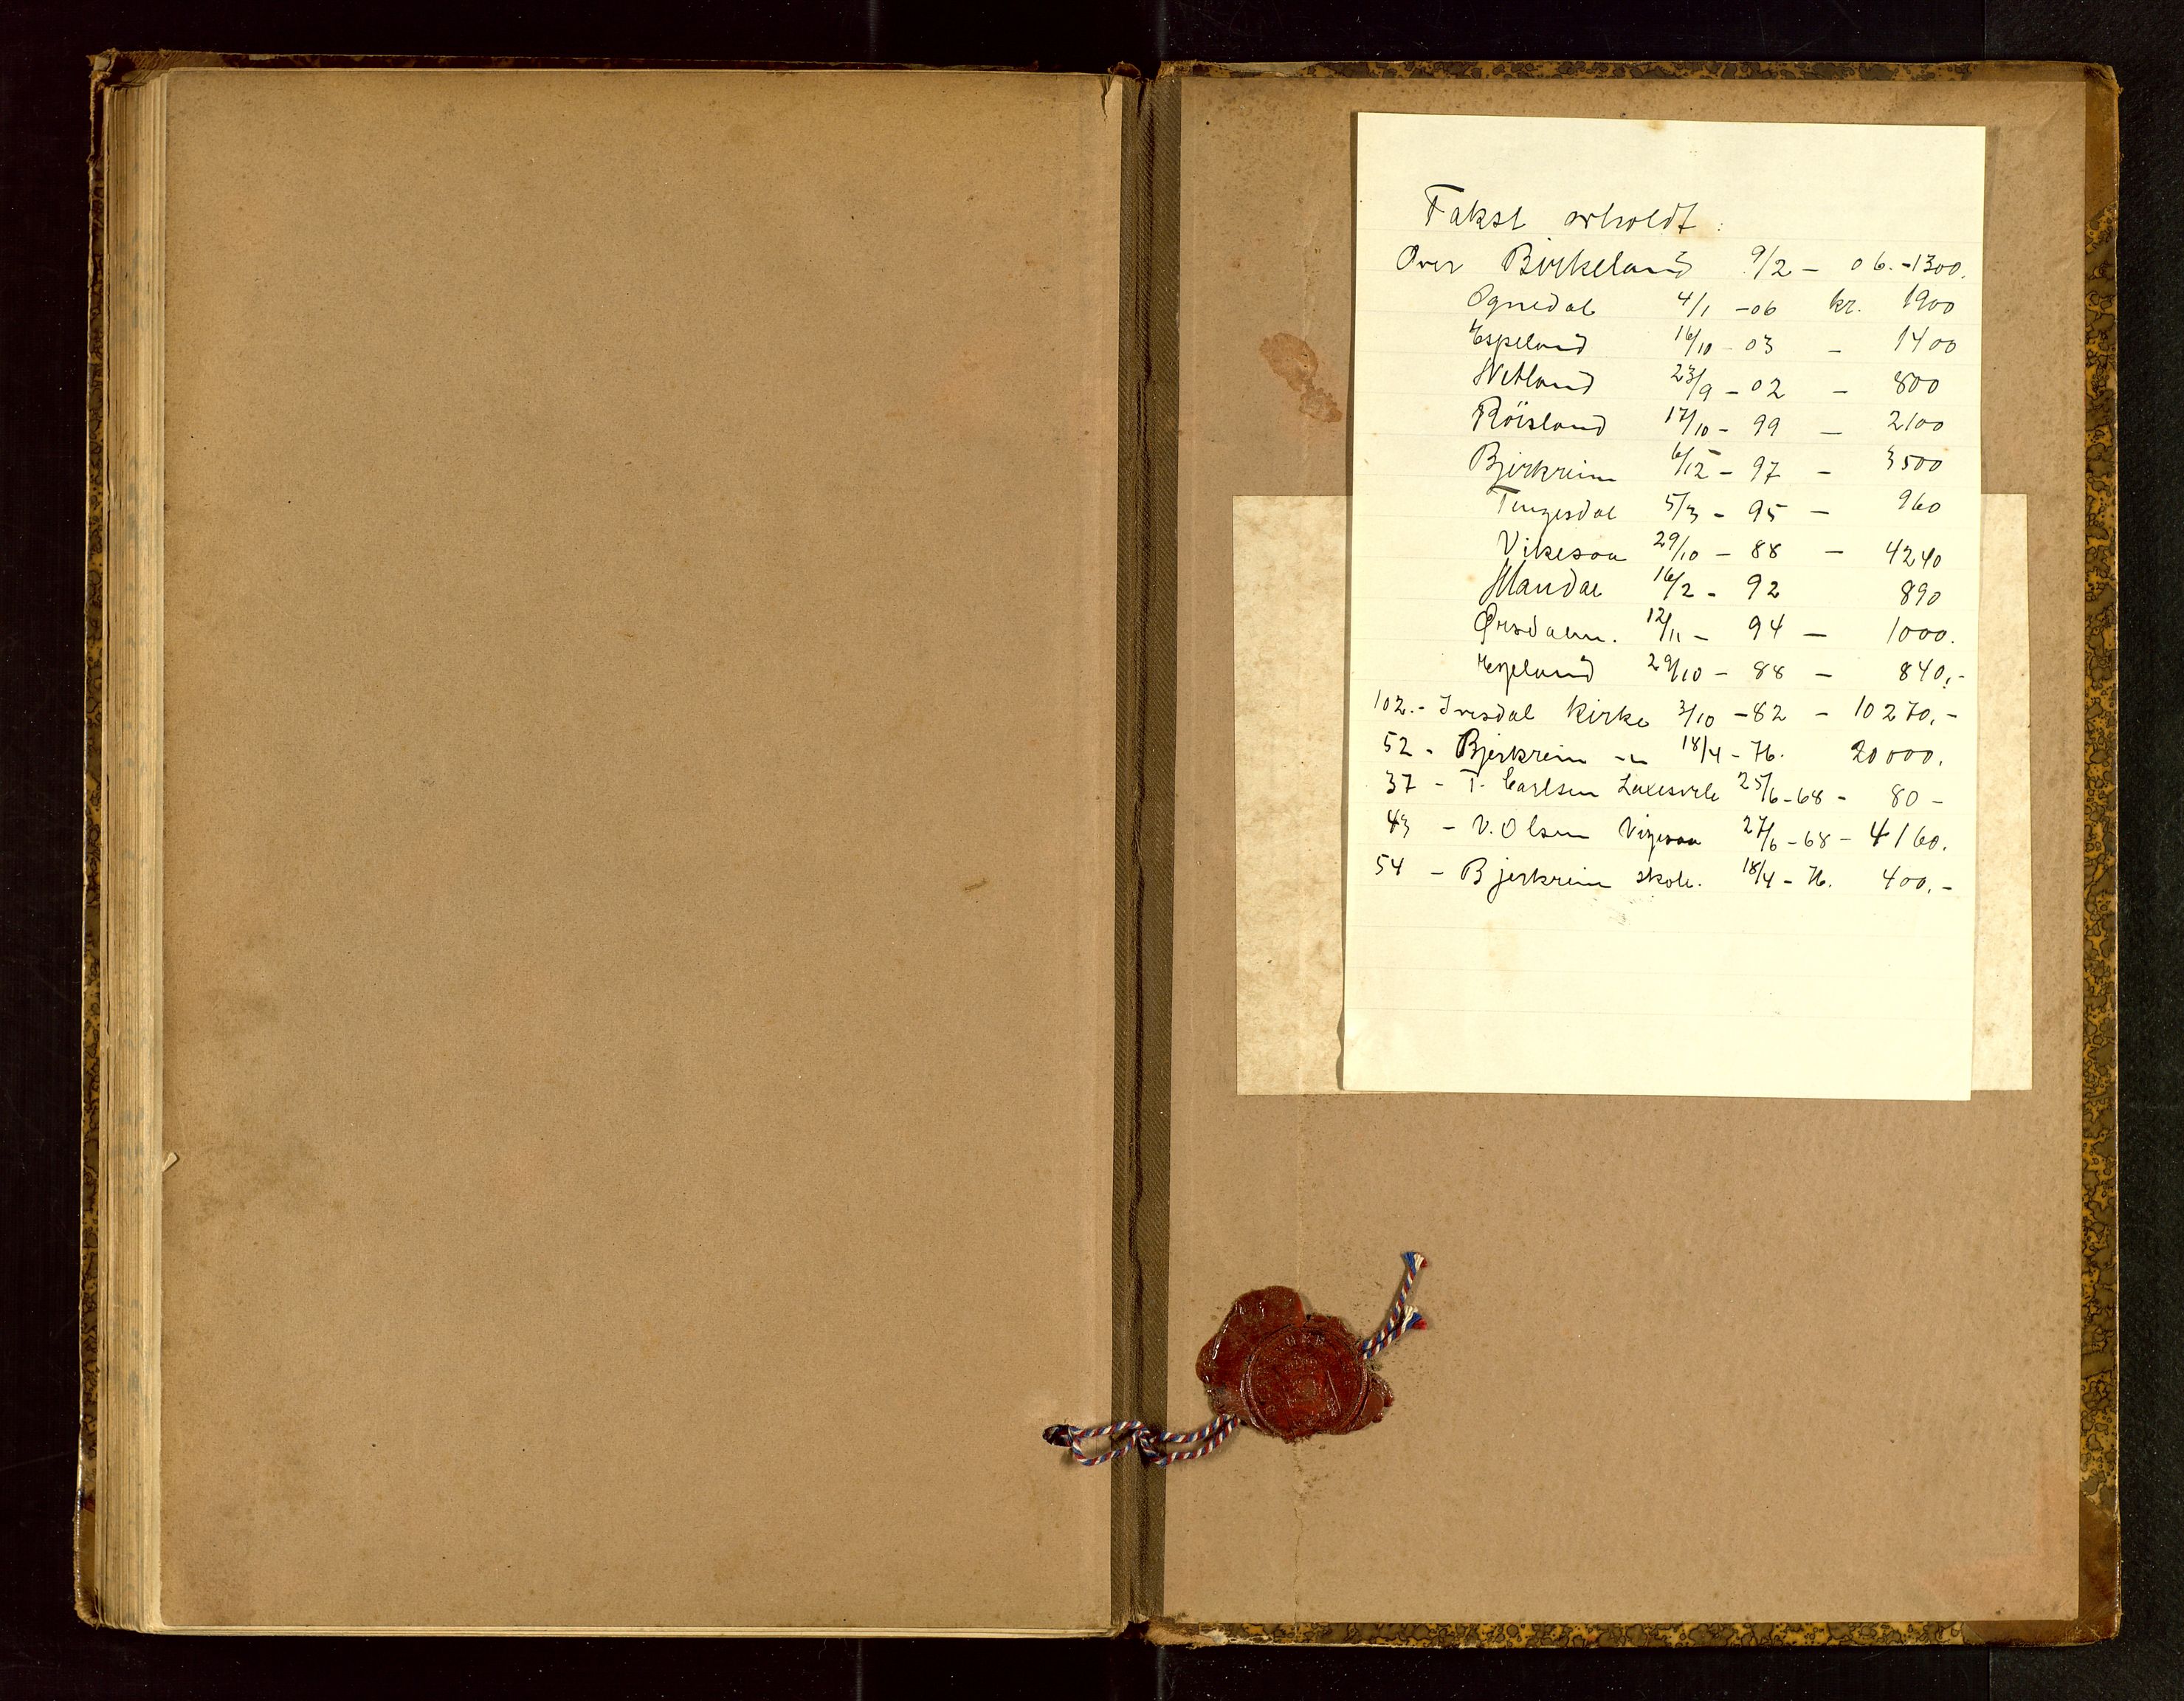 Takst erholdt:
Over Birkeland 9/2 - 06. - 1300.
Ognedal 4/1 - 06 kr. 1900
Espeland 16/10 - 03 - 1400
Netland 23/9 - 02 - 800
Röisland 17/10 - 99 - 2100
Bjerkreim 6/12 - 97 - 3500
Tengesdal 5/3 - 95 - 960
Vikesaa 29/10 - 88 - 4240
Maudal 16/2 - 92 890
Ørsdalen. 12/11 - 94 - 1000.
Espeland 29/10 - 88 - 840,-
102.- Ivesdal Kirke 3/10 - 82 - 10270,-
52 - Bjerkreim -"- 18/4 - 76. 20000.
37 - T. Carlsen 25/6 - 68 - 80 -
43 - V. Olsen Vigesaa 27/6 - 68 - 4160.
54 - Bjerkreim skole. 18/4 - 76. 400,-